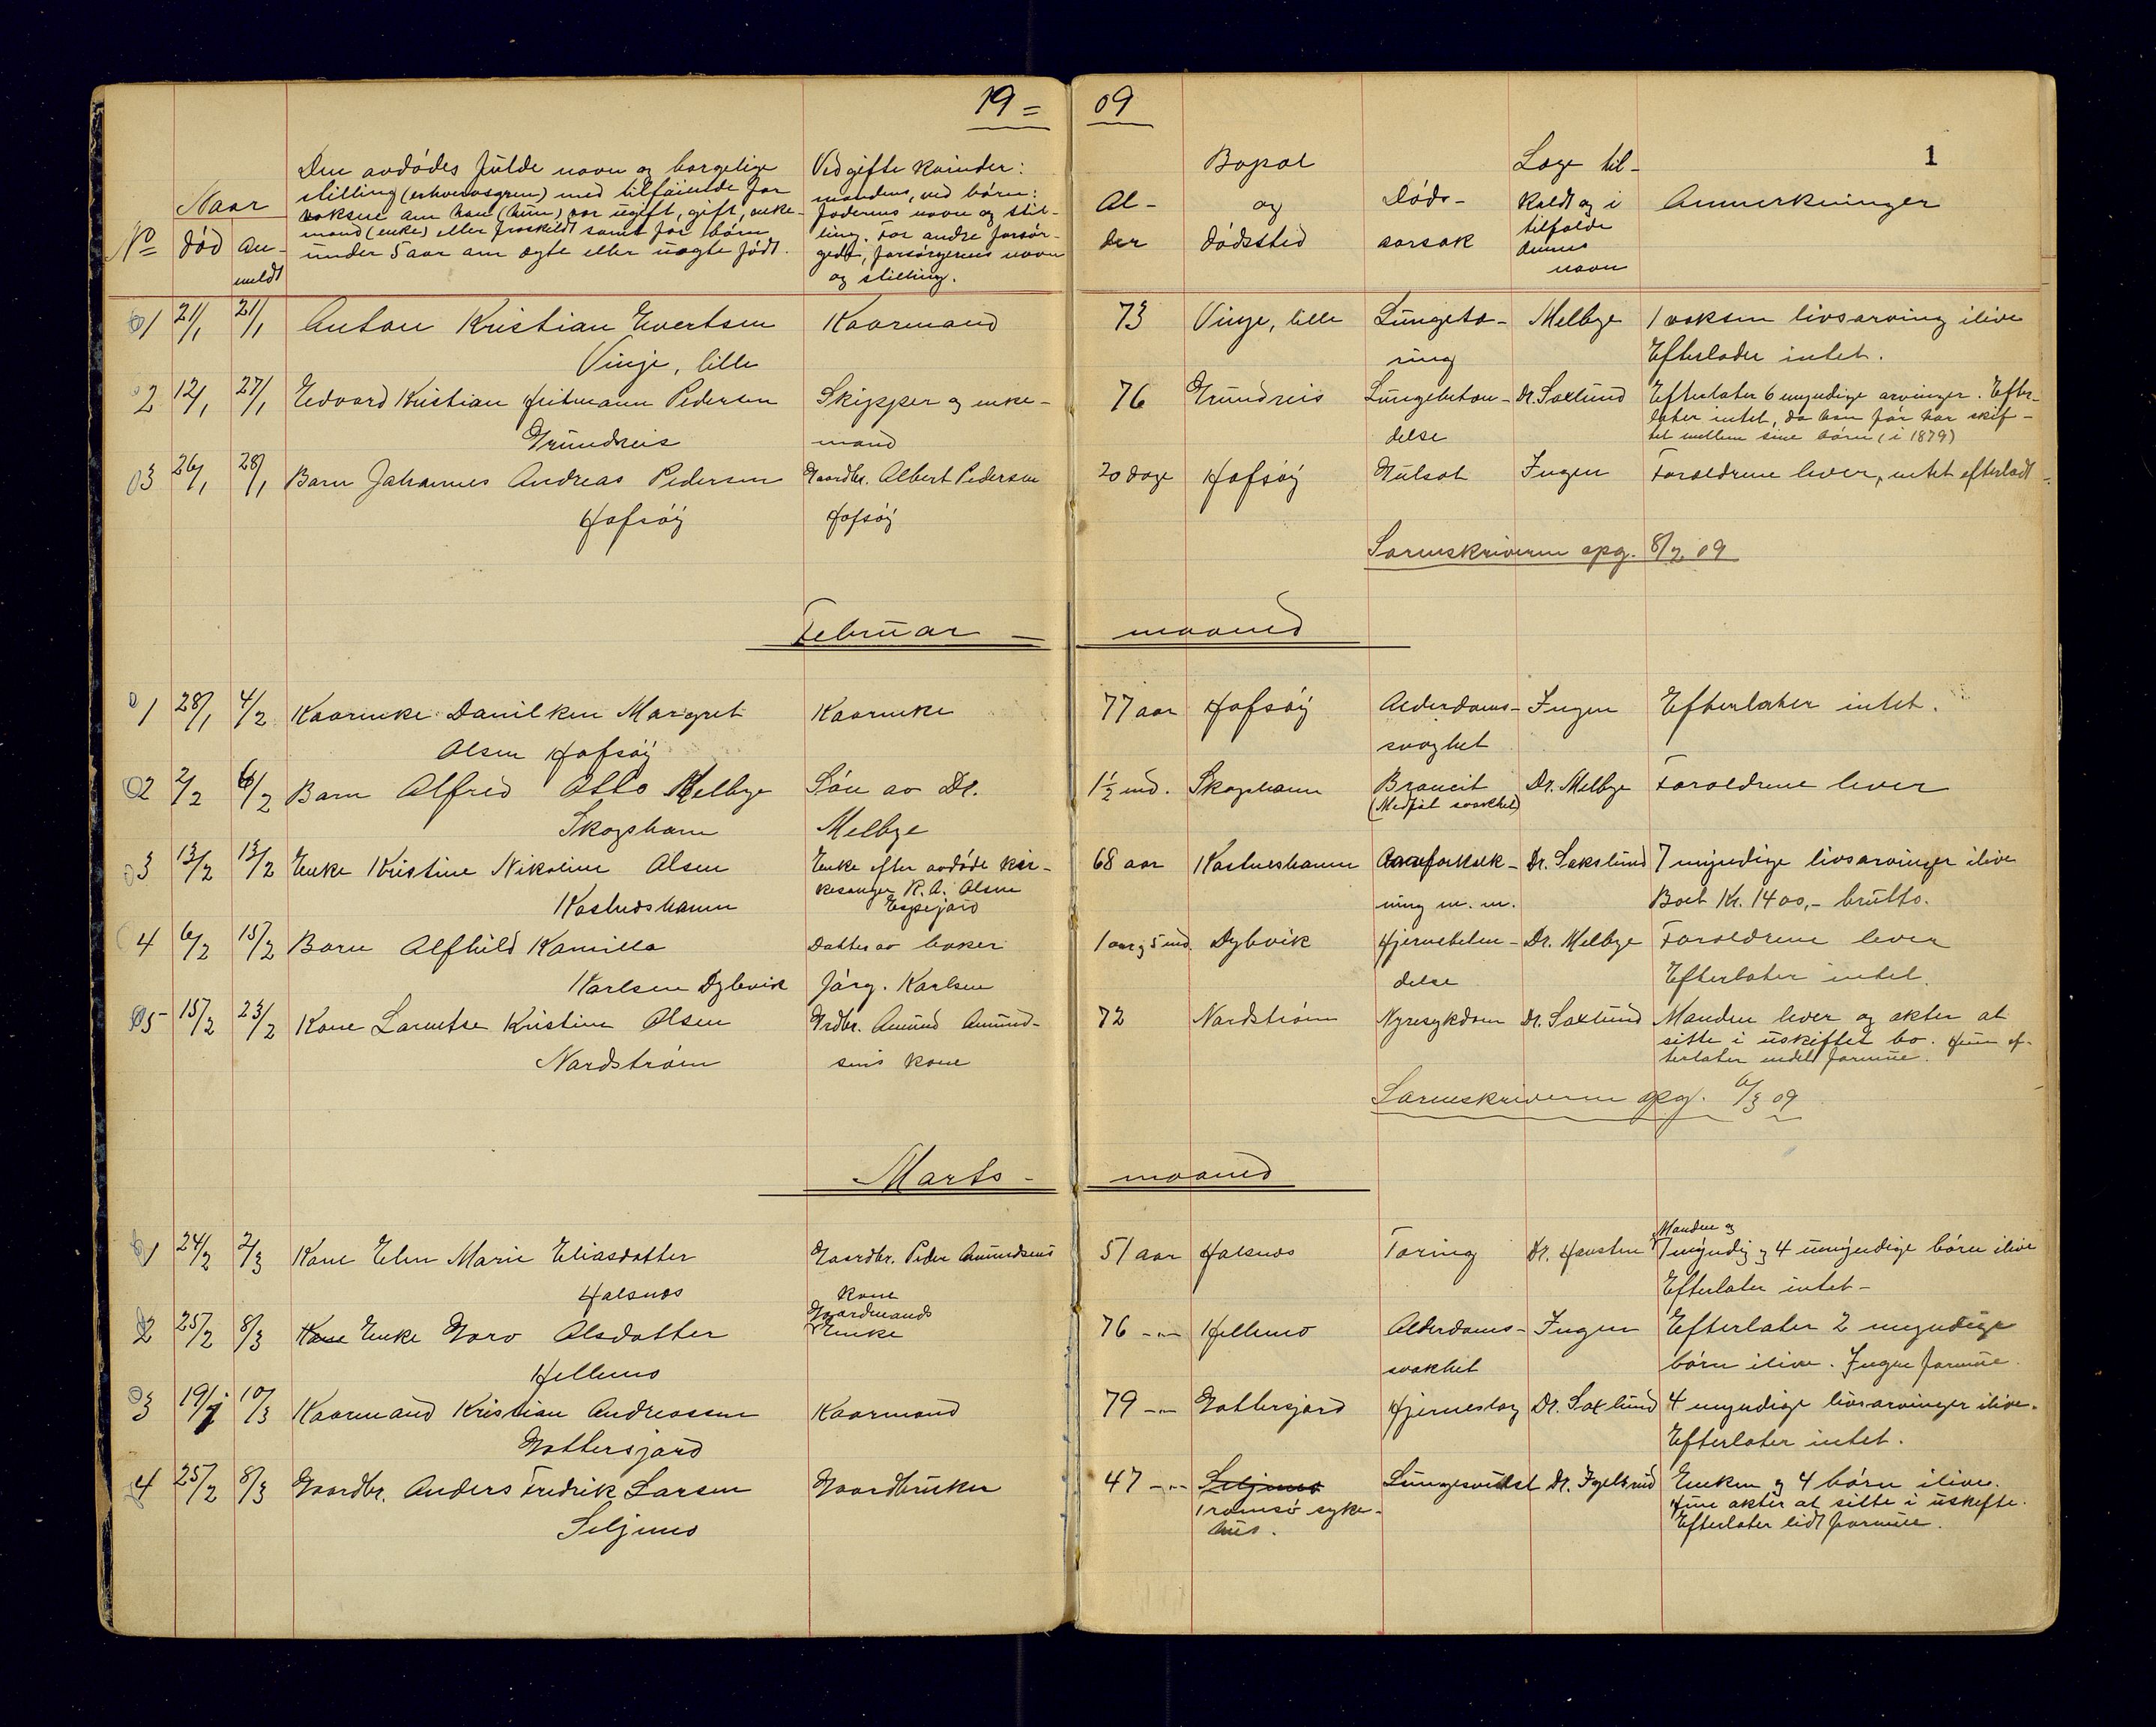 19 = 09
1
No
Naar
død
an-
meldt
Den avdødes fulde navn og borgelige
stilling (erhvervsgren) med tilføiende for
voksne om han (hun) var ugift, gift, enke-
mand (enke) eller fraskildt samt for børn
under 5 aar om ægte eller uægte født.
Ved gifte kvinder:
mandens, ved børn:
faderens navn og stil-
ling. For andre forsør-
gedt, forsørgerens navn
og stilling.
Al-
der
Bopæl
og
dødssted
Døds-
aarsak
Læge til-
kaldt og i
tilfælde
dennes
navn
Anmerkninger
1 21/1 21/1 Anton Kristian Evertsen Kaarmand 73 Vinje, lille Lungetæ- Melbye 1 voksen livsarving ilive
Vinje, lille ring Efterlader intet.
2 12/1 27/1 Edvard Kristian Heitmann Pedersen Skipper og enke- 76 Grundreis Lungebetæn- Dr. Saxlund Efterlater 6 myndige arvinger. Efter-
later intet, da han før har skif-
Grundreis mand delse tet mellem sine børn (i 1879)
3 26/1 28/1 Barn Johannes Andreas Pedersen Gaardbr. Albert Pedersen 20 dage Hofsøy Gulsot Ingen Forældrene lever, intet efterladt.
Hofsøy Hofsøy
Sorenskriveren opg. 8/2 09
Februar - maaned
1 28/1 4/2 Kaarenke Danilken Margret Kaarenke 77 aar Hofsøy Alderdoms- Ingen Efterlater intet.
Olsen Hofsøy svaghet
2 2/2 6/2 Barn Alfred Otto Melbye Søn av Dr. 1½ md. Skogshavn Broncit Dr. Melbye Forældrene lever
(Medføt svakhet)
Skogshavn Melbye
3 13/2 13/2 Enke Kristine Nikoline Olsen Enke efter avdøde kir- 68 aar Kastneshavn Aareforkalk- Dr. Sakslund 7 myndige livsarvinger ilive
kesanger K. A. Olsen
Kastneshavn Espejord ning m. m. Boet Kr. 1400,- brutto.
4 6/2 15/2 Barn Alfhild Kamilla Datter av baker 1 aar og 5 md. Dybvik Hjernebeten- Dr. Melbye Forældrene lever
Karlsen Dybvik Jørg. Karlsen delse Efterlater intet.
5 15/2 23/2 Kone Larentse Kristine Olsen Grdbr. Amund Amund- 72 Nordstrøm Nyresykdom Dr. Saxlund Manden lever og akter at
sitte i uskiftet bo. Hun ef-
Nordstrøm sens kone terlater endel formue.
Sorenskriveren opg. 6/3 09
Marts - maaned
Manden og
1 24/2 2/3 Kone Elen Marie Eliasdatter Gaardbr. Peder Amundsens 51 aar Halsnæs Tæring Dr. Hansten 1 myndig og 4 umyndige børn ilive
Halsnæs kone Efterlater intet-
2 25/2 8/3 Kone Enke Goro Olsdatter Gaardmands Enke 76 -"- Hellemo Alderdoms- Ingen Efterlater 2 myndige
Hellemo svakhet børn ilive. Ingen formue.
3 19/1 10/3 Kaarmand Kristian Andreassen Kaarmand 79 -"- Gottersjord Hjerneslag Dr. Saxlund 4 myndige livsarvinger ilive.
Gottersjord Efterlater intet.
4 25/2 8/3 Gaardbr. Anders Fredrik Larsen Gaardbruker 47 -"- Seljenes Lungesvulst Dr. Igelsrud Enken og 4 børn ilive.
Seljenes Tromsø syke- Hun akter at sitte i uskifte.
hus. Efterlater lidt formue.